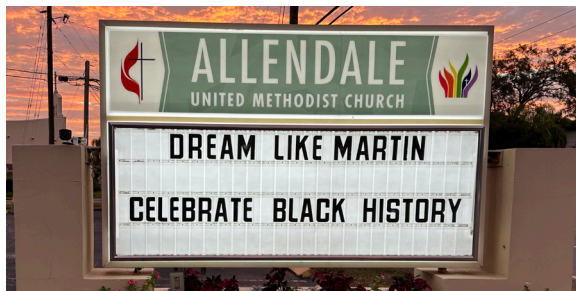 ALLENDALE
UNITED METHODIST CHURCH
DREAM LIKE MARTIN
CELEBRATE BLACK HISTORY